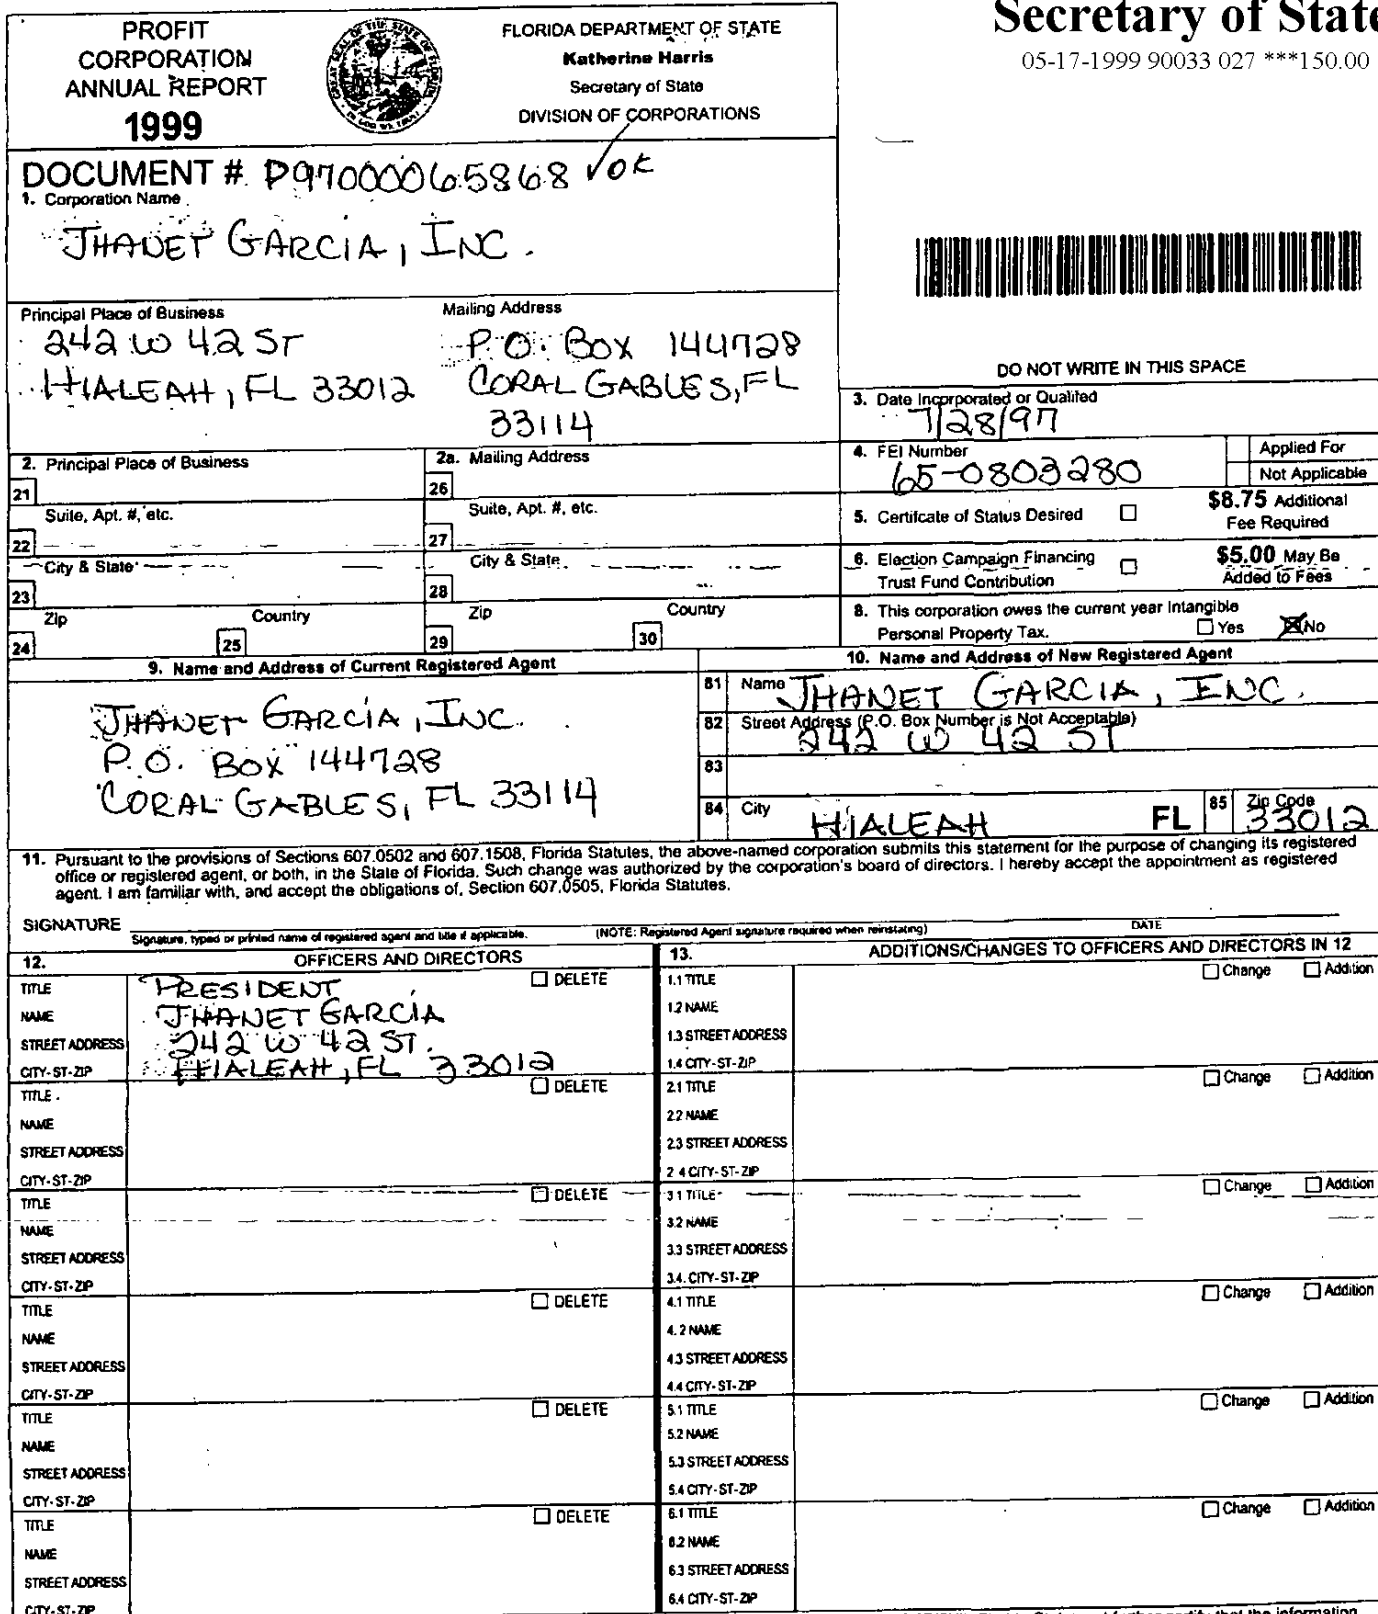 PROFIT
CORPORATION
ANNUAL REPORT
1999
FLORIDA DEPARTMENT OF STATE
Katherine Harris
Secretary of State
DIVISION OF CORPORATIONS
Secretary of State
05-17-1999 90033 027 ***150.00
DOCUMENT # P97000065868 ✓OK
1. Corporation Name
JHANET GARCIA, INC.
Principal Place of Business
242 W 42 ST
HIALEAH, FL 33012
Mailing Address
P.O. BOX 144728
CORAL GABLES, FL
33114
DO NOT WRITE IN THIS SPACE
3. Date Incorporated or Qualifed
7/28/97
2. Principal Place of Business
21
Suite, Apt. #, etc.
22
City & State
23
Zip
Country
24
25
2a. Mailing Address
26
Suite, Apt. #, etc.
27
City & State
28
Zip
Country
29
30
4. FEI Number
65-0803280
Applied For
Not Applicable
5. Certifcate of Status Desired
$8.75 Additional
Fee Required
6. Election Campaign Financing
Trust Fund Contribution
$5.00 May Be
Added to Fees
8. This corporation owes the current year Intangible
Personal Property Tax.
Yes
No
9. Name and Address of Current Registered Agent
JHANET GARCIA, INC.
P.O. BOX 144728
CORAL GABLES, FL 33114
10. Name and Address of New Registered Agent
81 Name JHANET GARCIA, INC.
82 Street Address (P.O. Box Number is Not Acceptable)
242 W 42 ST
83
84 City HIALEAH FL 85 Zip Code 33012
11. Pursuant to the provisions of Sections 607.0502 and 607.1508, Florida Statutes, the above-named corporation submits this statement for the purpose of changing its registered
office or registered agent, or both, in the State of Florida. Such change was authorized by the corporation's board of directors. I hereby accept the appointment as registered
agent. I am familiar with, and accept the obligations of, Section 607.0505, Florida Statutes.
SIGNATURE
Signature, typed or printed name of registered agent and title if applicable.
(NOTE: Registered Agent signature required when reinstating)
DATE
12. OFFICERS AND DIRECTORS
TITLE PRESIDENT DELETE
NAME JHANET GARCIA
STREET ADDRESS 242 W 42 ST.
CITY-ST-ZIP HIALEAH, FL 33012
TITLE DELETE
NAME
STREET ADDRESS
CITY-ST-ZIP
TITLE DELETE
NAME
STREET ADDRESS
CITY-ST-ZIP
TITLE DELETE
NAME
STREET ADDRESS
CITY-ST-ZIP
TITLE DELETE
NAME
STREET ADDRESS
CITY-ST-ZIP
TITLE DELETE
NAME
STREET ADDRESS
CITY-ST-ZIP
13. ADDITIONS/CHANGES TO OFFICERS AND DIRECTORS IN 12
1.1 TITLE Change Addition
1.2 NAME
1.3 STREET ADDRESS
1.4 CITY-ST-ZIP
2.1 TITLE Change Addition
2.2 NAME
2.3 STREET ADDRESS
2.4 CITY-ST-ZIP
3.1 TITLE Change Addition
3.2 NAME
3.3 STREET ADDRESS
3.4. CITY-ST-ZIP
4.1 TITLE Change Addition
4.2 NAME
4.3 STREET ADDRESS
4.4 CITY-ST-ZIP
5.1 TITLE Change Addition
5.2 NAME
5.3 STREET ADDRESS
5.4 CITY-ST-ZIP
6.1 TITLE Change Addition
6.2 NAME
6.3 STREET ADDRESS
6.4 CITY-ST-ZIP
further certify that the information